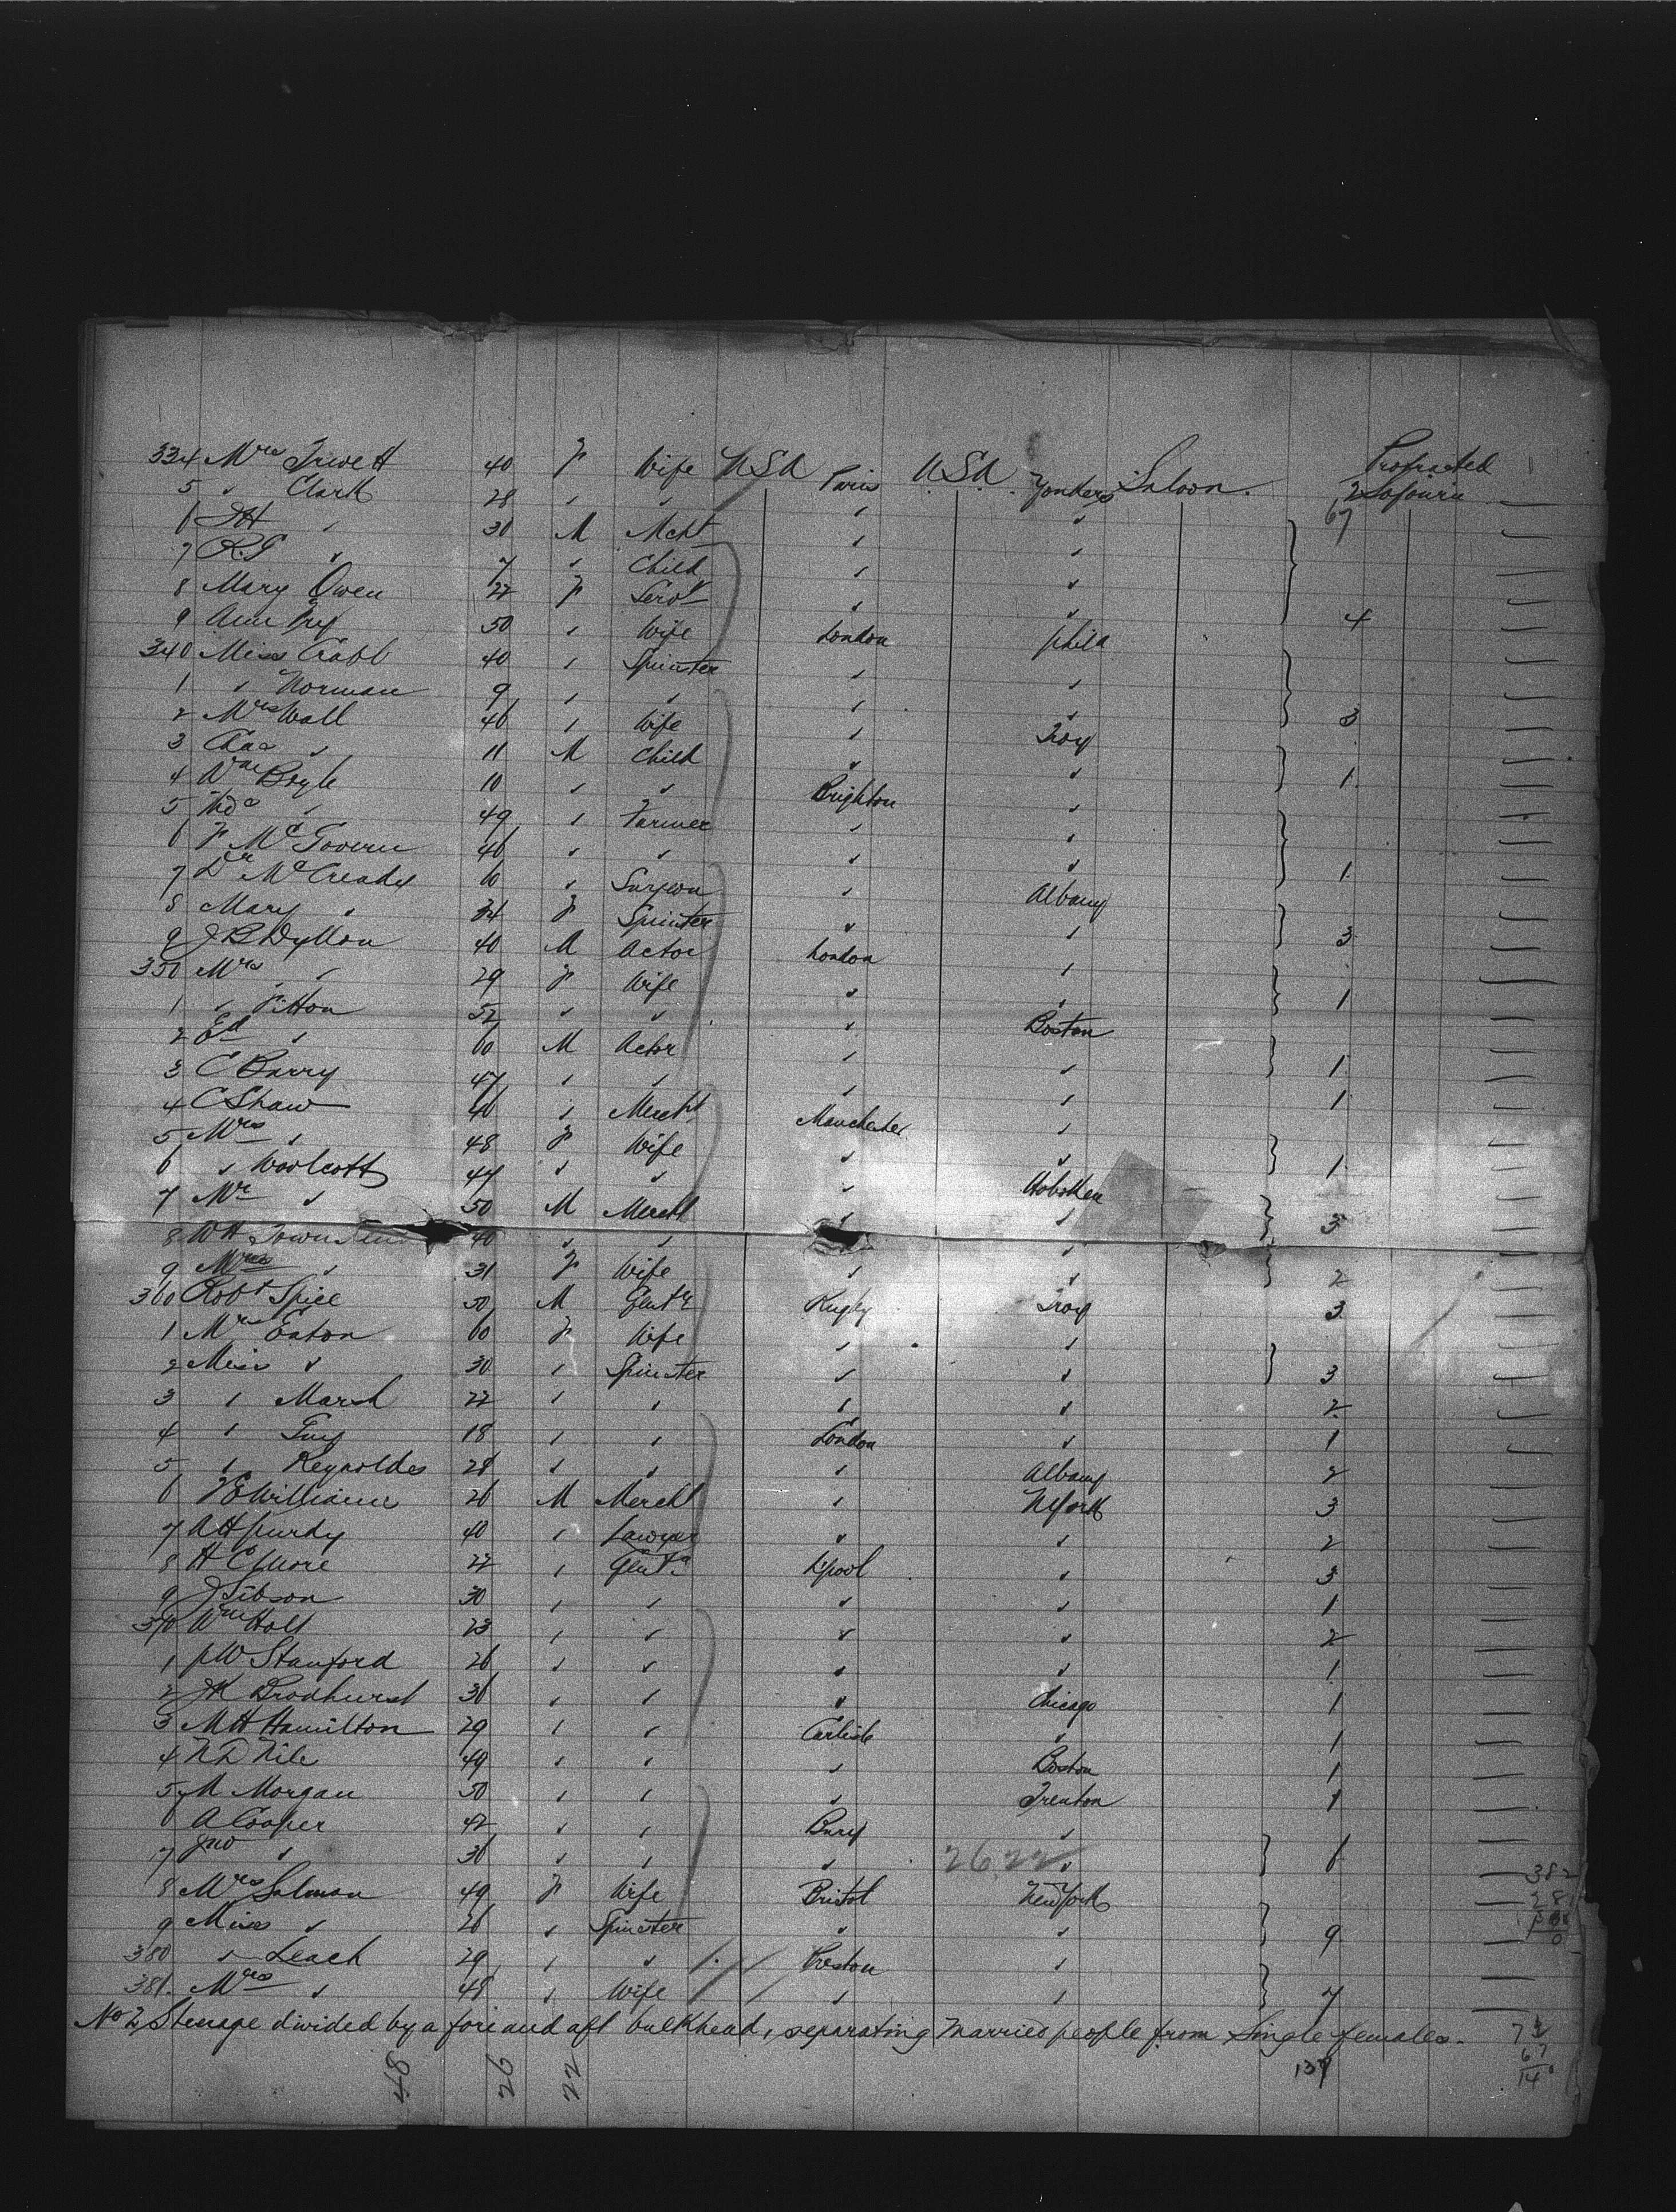 334 Mrs 40 F Wife USA Paris USA Yonkers Saloon. Protracted Sojourn
5 " Clark 28 " " " " 2
6 " 36 M Mcht " " 67
7 R.G " 7 " Child " "
8 Mary Owen 22 F Servt " " 4
9 Ann 50 " Wife London Phila
340 Miss Crabb 40 " Spinster " "
1 " Norman 9 " " " " 3
2 Mrs Wall 46 " Wife " Troy
3 Chas " 11 M Child " " 1
4 Wm Boyle 10 " " Brighton "
5 " 49 " Farmer " "
6 F McGovern 46 " " " " 1
7 Dr McCready 60 " Surgeon " Albany
8 Mary " 34 F Spinster " " 3
9 J B Dyllon 40 M Actor London "
350 Mrs " 29 F Wife " " 1
1 " Pitton 52 " " " Boston
2 Ed " 60 M Actor " " 1
3 C Barry 47 " " " " 1
4 C Shaw 46 " Mercht Manchester "
5 Mrs " 48 F Wife " " 1
6 " Woolcott 47 " " " Hoboken
7 Mr " 50 M Mercht " " 3
8 W H 40 " " "
9 Mrs " 31 F Wife " " 2
360 Robt Spice 50 M Gentn Rugby Troy 3
1 Mrs Eaton 60 F Wife " "
2 Miss " 30 " Spinster " " 3
3 " Marsh 22 " " " " 2
4 " 18 " " London " 1
5 " Reynolds 28 " " " Albany 2
6 Williams 26 M Mercht " NYork 3
7 A H Purdy 40 " Lawyer " " 2
8 H C More 22 " Gentn Lpool " 3
9 J Gibson 30 " " " " 1
370 Wm Holt 23 " " " " 2
1 P W Stanford 26 " " " " 1
2 J K Brodhurst 36 " " " Chicago 1
3 M H Hamilton 29 " " Carlisle " 1
4 N D Nile 49 " " " Boston 1
5 M Morgan 50 " " " Trenton 1
6 A Cooper 42 " " Bury "
7 Jno " 36 " " " 2622 " 6
8 Mrs Salmon 49 F Wife Bristol New York
9 Miss " 26 " Spinster " " 9
380 " Leach 29 " " Preston "
381. Mrs " 48 " Wife " " 7
No 2, Steerage divided by a fore and aft bulkhead, separating Married people from Single females.
48 26 22 137